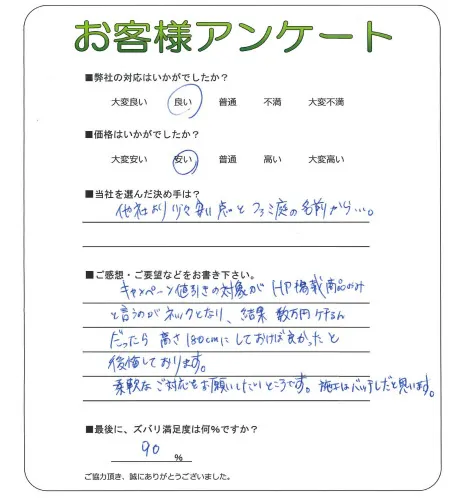 お客様アンケート
■弊社の対応はいかがでしたか?
大変良い 良い 普通 不満 大変不満
■価格はいかがでしたか?
大変安い 安い 普通 高い 大変高い
■当社を選んだ決め手は?
他社より少々安い点とファミ庭の名前から…。
■ご感想・ご要望などをお書き下さい。
キャンペーン値引きの対象がHP掲載商品のみ
と言うのがネックとなり、結果 数万円ケチるん
だったら 高さ180cmにしておけば良かったと
後悔しております。
柔軟なご対応をお願いしたいところです。施工はバッチしだと思います。
■最後に、ズバリ満足度は何%ですか?
90 %
ご協力頂き、誠にありがとうございました。